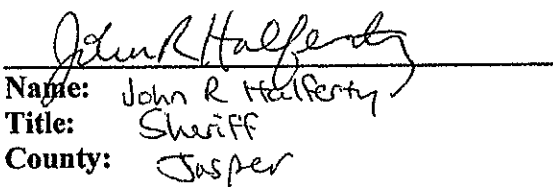 John R Halferty
Name: John R Halferty
Title: Sheriff
County: Jasper